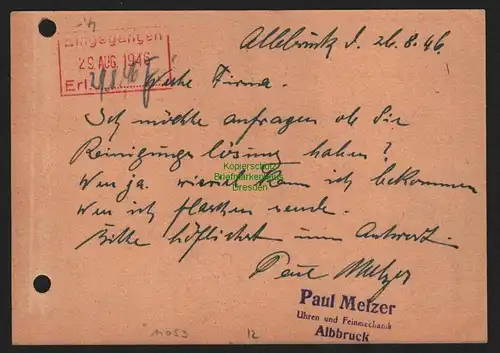 Eingegangen
29. AUG. 1946
Erl.
Albbruck d. 26.8.46.
Werte Firma.
Ich möchte anfragen ob Sie
Reinigungslösung haben?
Wen ja. wieviel kann ich bekommen
Wen ich flaschen sende.
Bitte höflichst um Antwort.
Paul Melzer
Paul Melzer
Uhren und Feinmechanik
Albbruck
Kopierschutz
Briefmarkenhaus
Dresden
11053
12